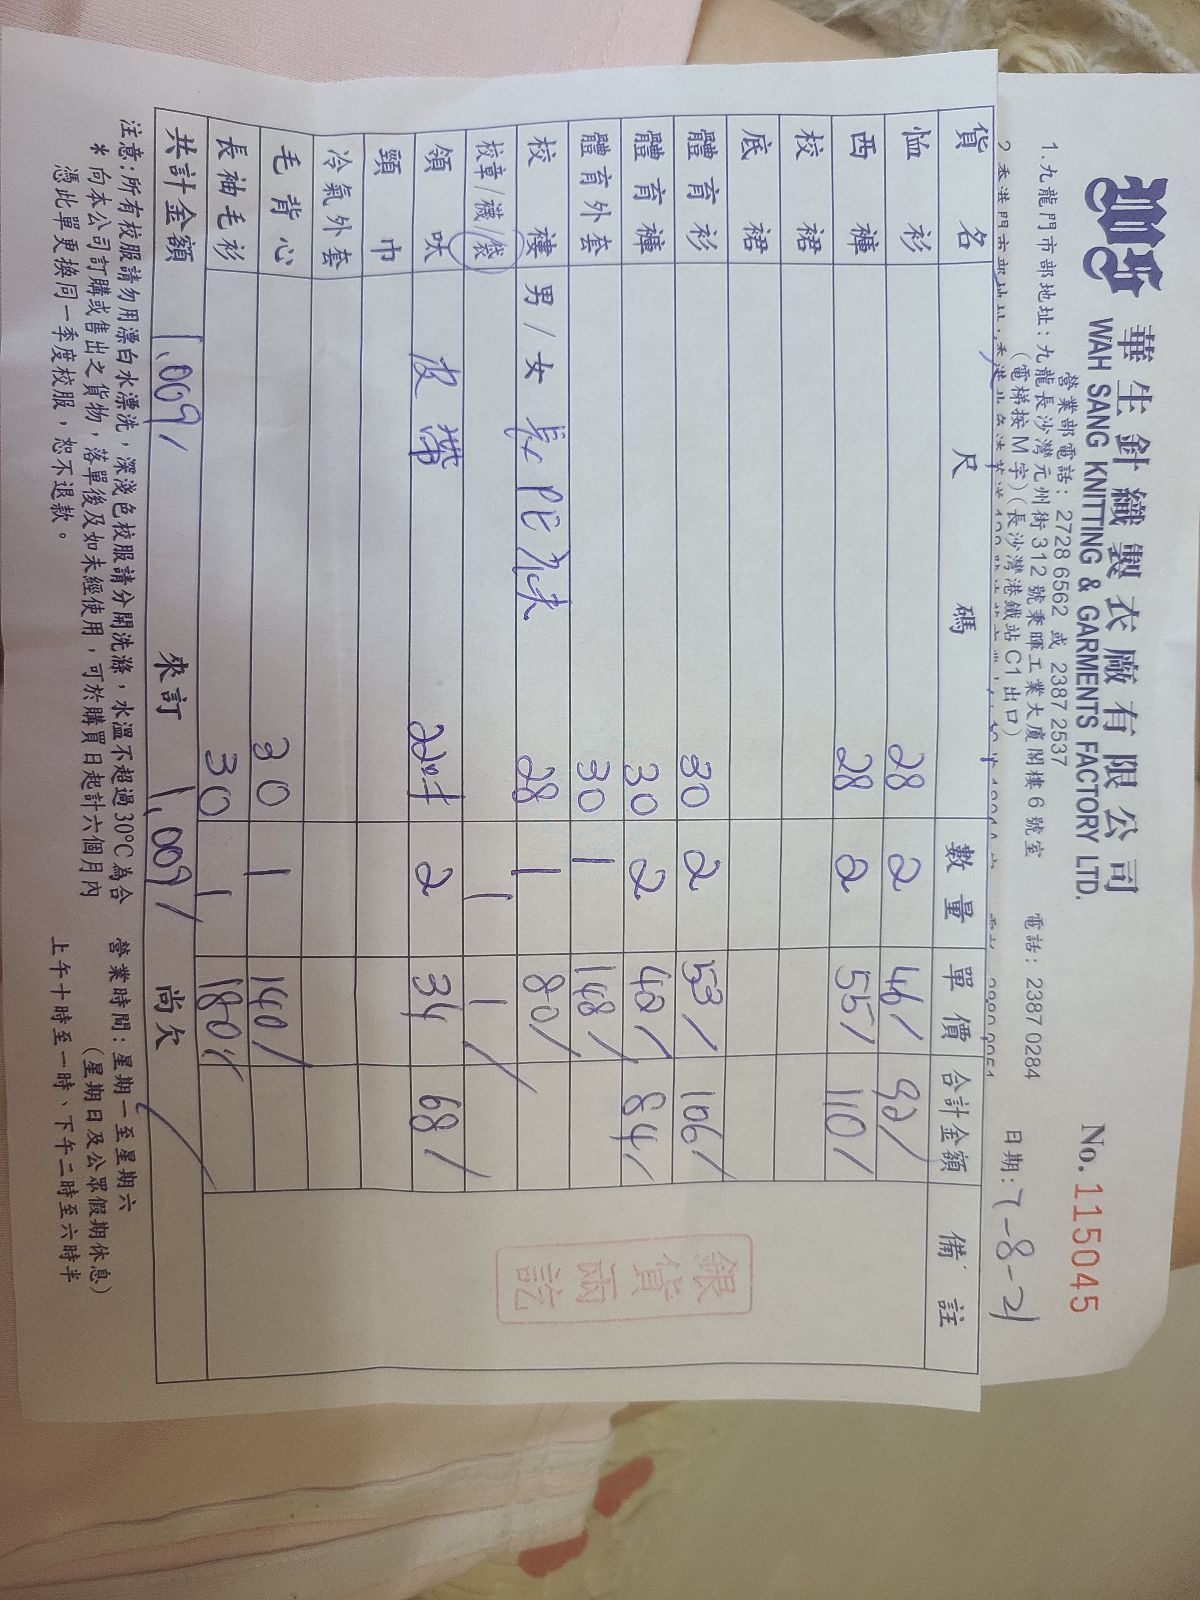 華生針織製衣廠有限公司
WAH SANG KNITTING & GARMENTS FACTORY LTD.
No. 115045
營業部電話: 2728 6562 或 2387 2537
1.九龍門市部地址: 九龍長沙灣元州街312號東暉工業大廈閣樓6號室 電話: 2387 0284
(電梯按M字)(長沙灣港鐵站C1出口)
日期: 7-8-21
貨名 尺碼 數量 單價 合計金額 備註
恤衫 28 2 46/ 92/
西褲 28 2 55/ 110/
校裙
底裙
體育衫 30 2 53/ 106/
體育褲 30 2 42/ 84/
體育外套 30 1 148/
校褸 男/女 長 28 1 80/
校章/襪/袋 1 1
領呔 皮帶 22吋 2 34 68/
頸巾
冷氣外套
毛背心 30 1 140/
長袖毛衫 30 1 180/
共計金額 1,009/ 來訂 1,009/ 尚欠
銀貨兩訖
注意:所有校服請勿用漂白水漂洗,深淺色校服請分開洗滌,水溫不超過30°C為合
* 向本公司訂購或售出之貨物,落單後及如未經使用,可於購買日起計六個月內
憑此單更換同一季度校服,恕不退款。
營業時間: 星期一至星期六
(星期日及公眾假期休息)
上午十時至一時、下午二時至六時半